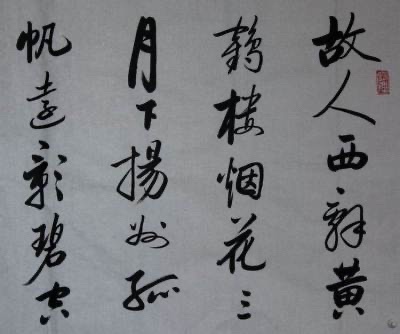 故人西辞黄
鹤楼烟花三
月下揚州孤
帆遠影碧空